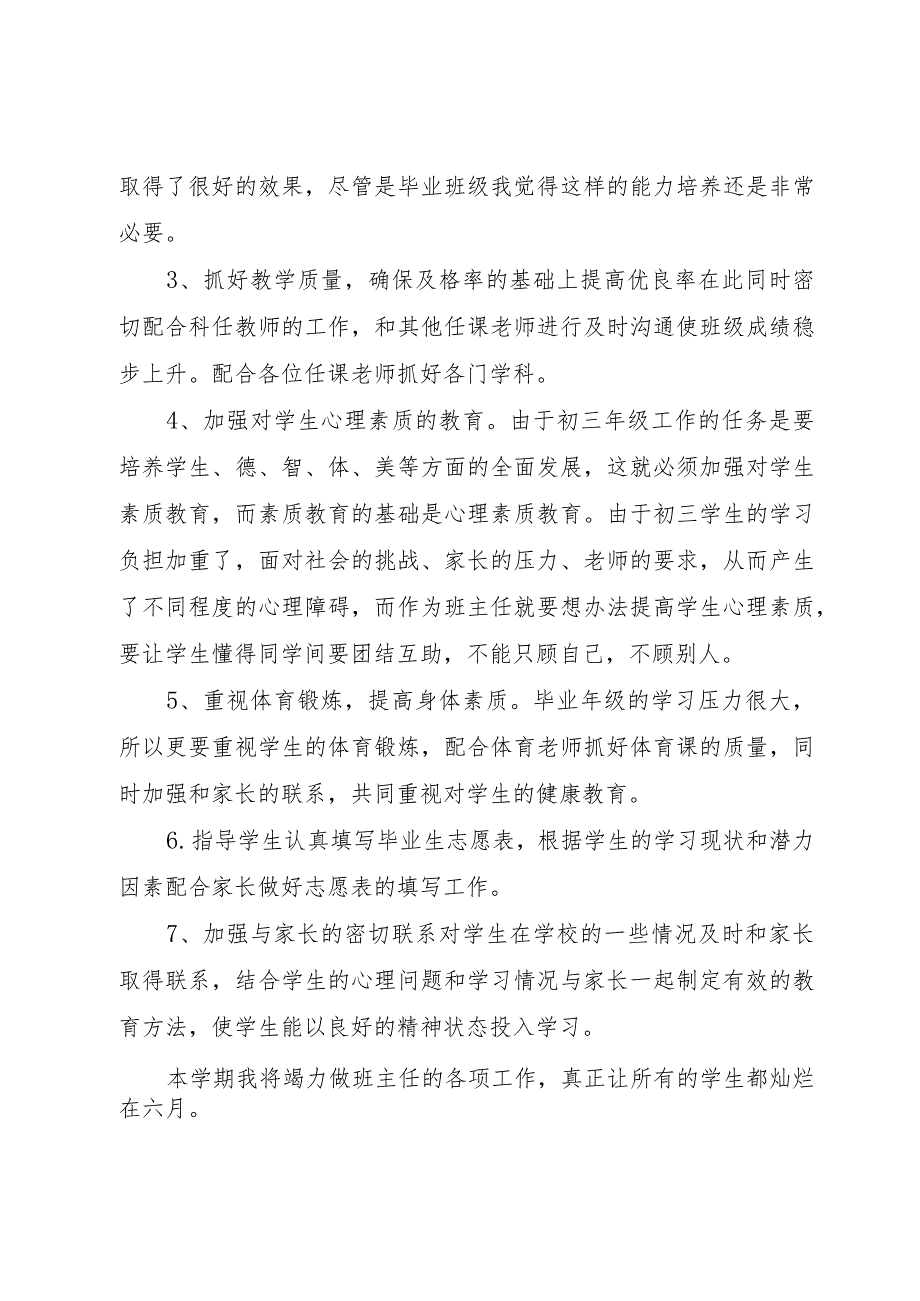 取得了很好的效果，尽管是毕业班级我觉得这样的能力培养还是非常
必要。
3、抓好教学质量，确保及格率的基础上提高优良率在此同时密
切配合科任教师的工作，和其他任课老师进行及时沟通使班级成绩稳
步上升。配合各位任课老师抓好各门学科。
4、加强对学生心理素质的教育。由于初三年级工作的任务是要
培养学生、德、智、体、美等方面的全面发展，这就必须加强对学生
素质教育，而素质教育的基础是心理素质教育。由于初三学生的学习
负担加重了，面对社会的挑战、家长的压力、老师的要求，从而产生
了不同程度的心理障碍，而作为班主任就要想办法提高学生心理素质，
要让学生懂得同学间要团结互助，不能只顾自己，不顾别人。
5、重视体育锻炼，提高身体素质。毕业年级的学习压力很大，
所以更要重视学生的体育锻炼，配合体育老师抓好体育课的质量，同
时加强和家长的联系，共同重视对学生的健康教育。
6.指导学生认真填写毕业生志愿表，根据学生的学习现状和潜力
因素配合家长做好志愿表的填写工作。
7、加强与家长的密切联系对学生在学校的一些情况及时和家长
取得联系，结合学生的心理问题和学习情况与家长一起制定有效的教
育方法，使学生能以良好的精神状态投入学习。
本学期我将竭力做班主任的各项工作，真正让所有的学生都灿烂
在六月。